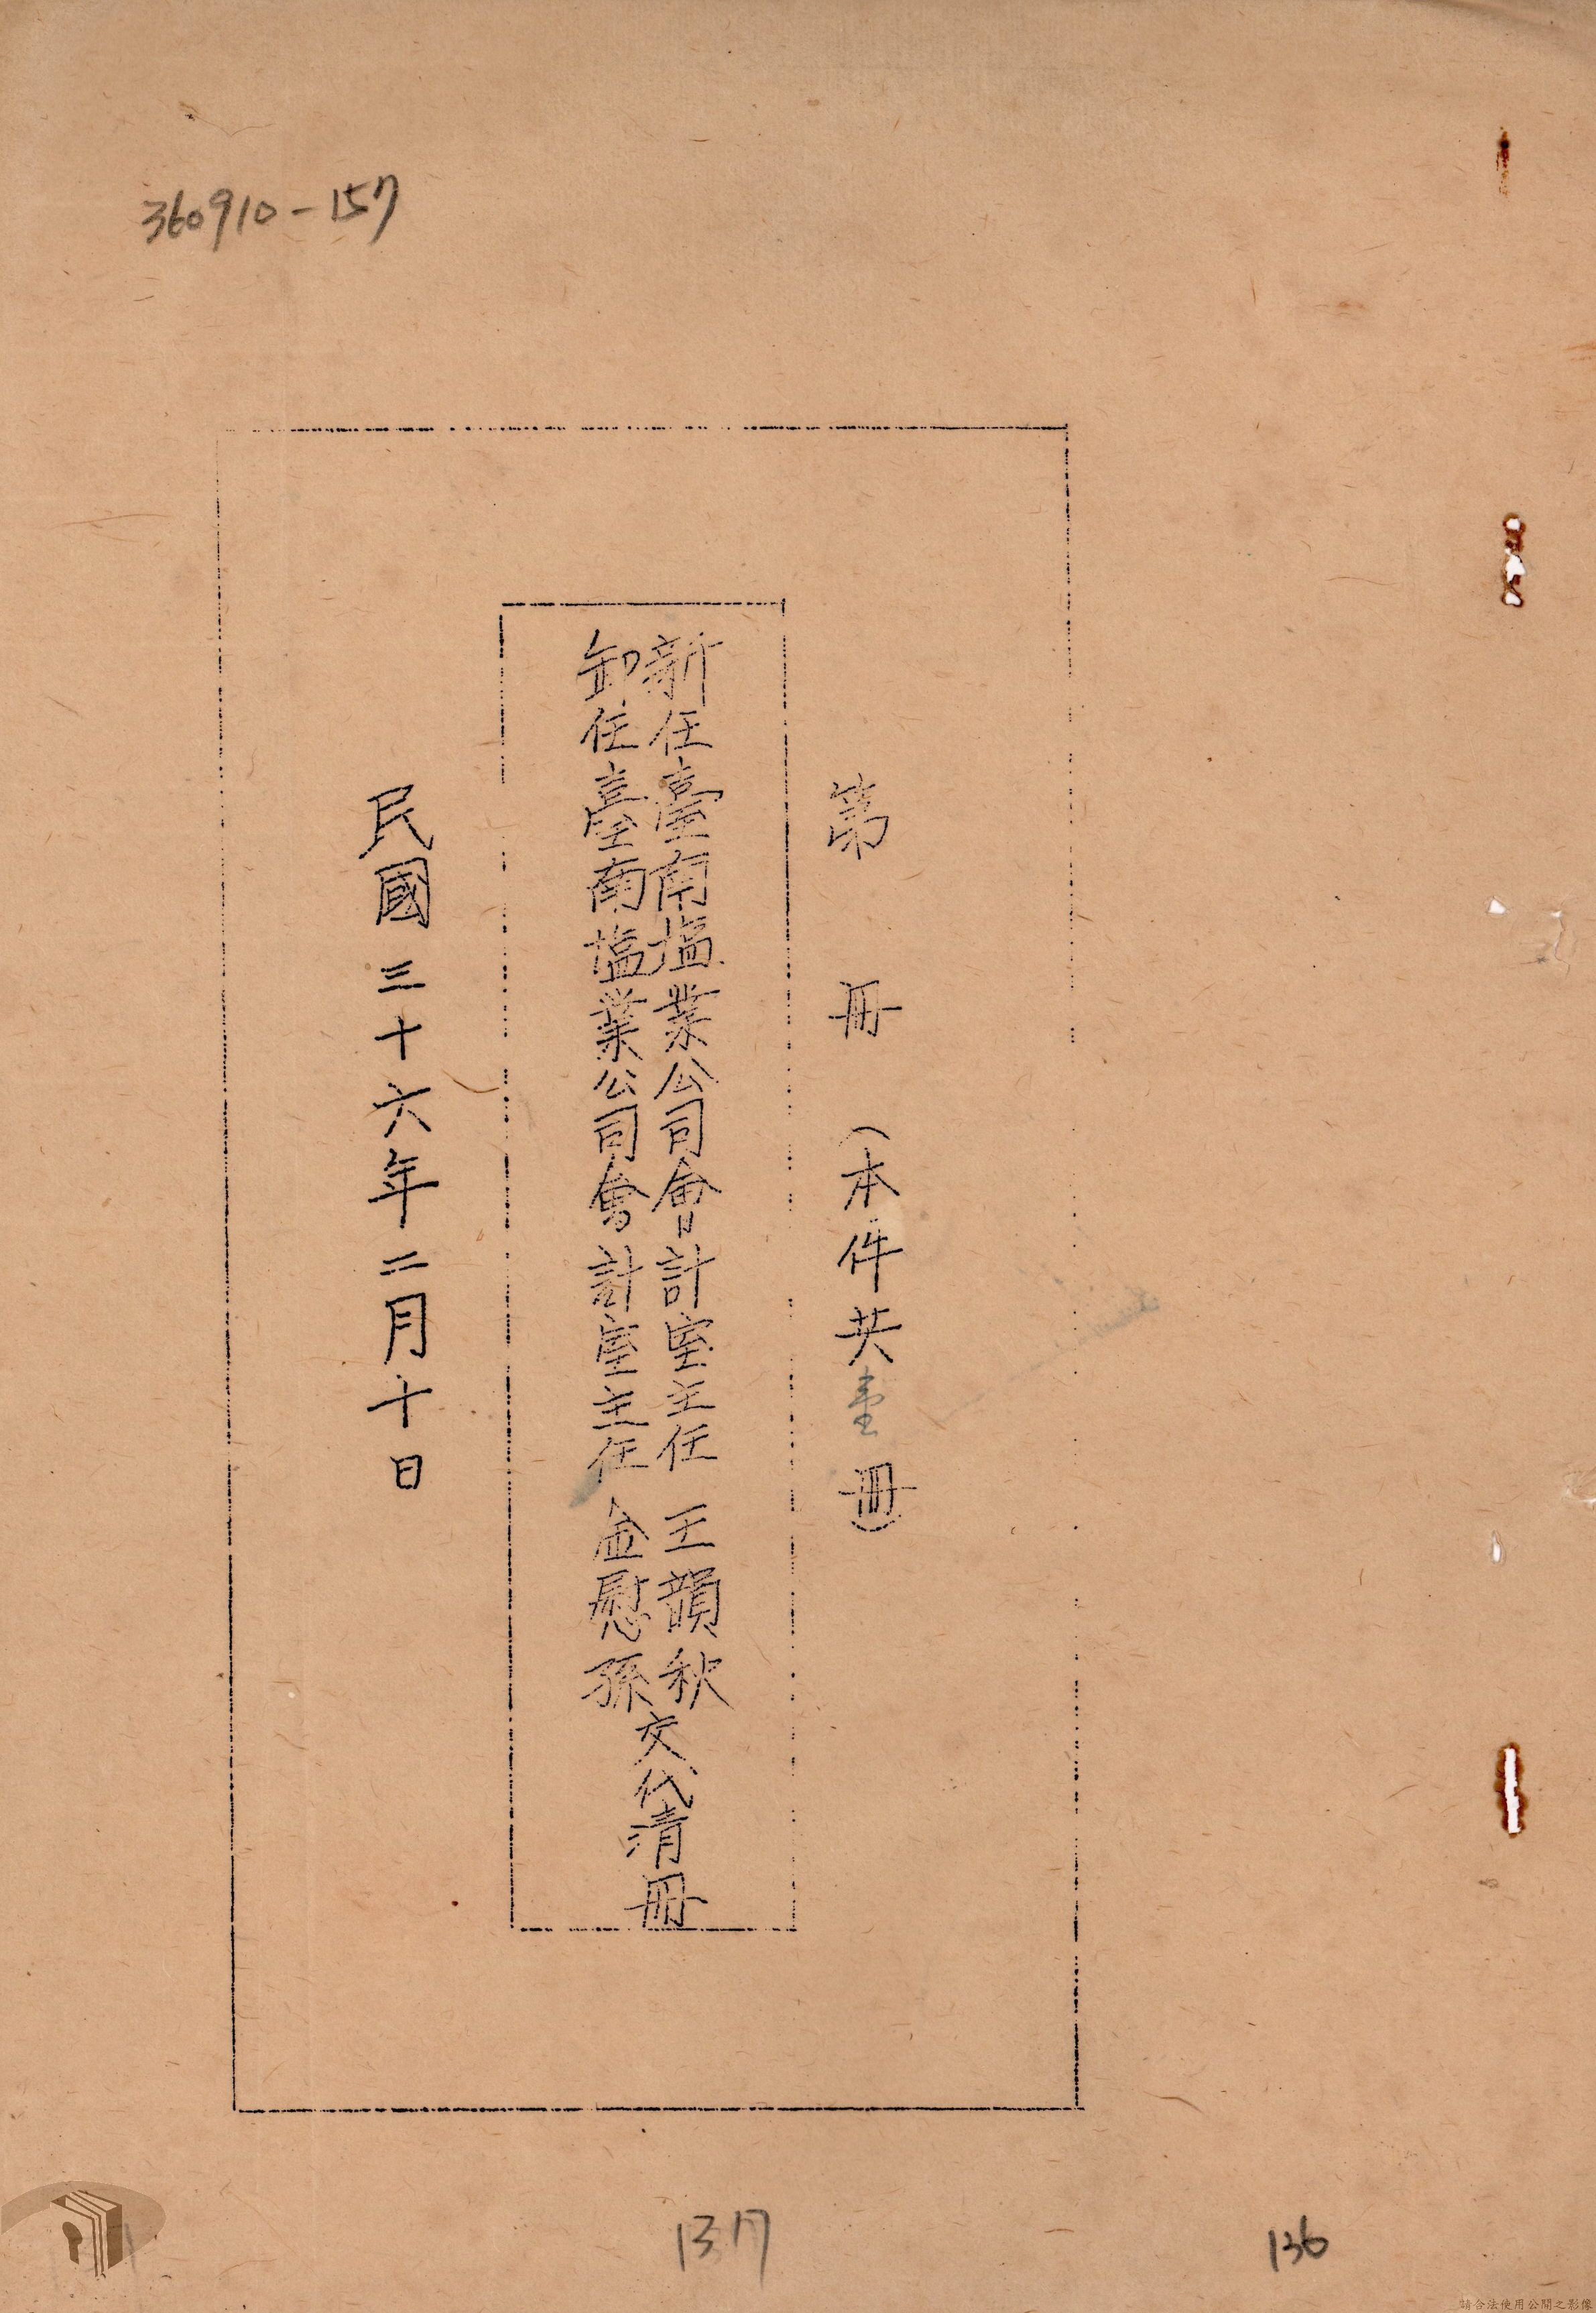 360910-157
第 冊 (本件共壹冊)
新任臺南塩業公司會計室主任 王韻秋
卸任臺南塩業公司會計室主任 金慰孫
交代清冊
民國三十六年二月十日
137
136
請合法使用公開之影像